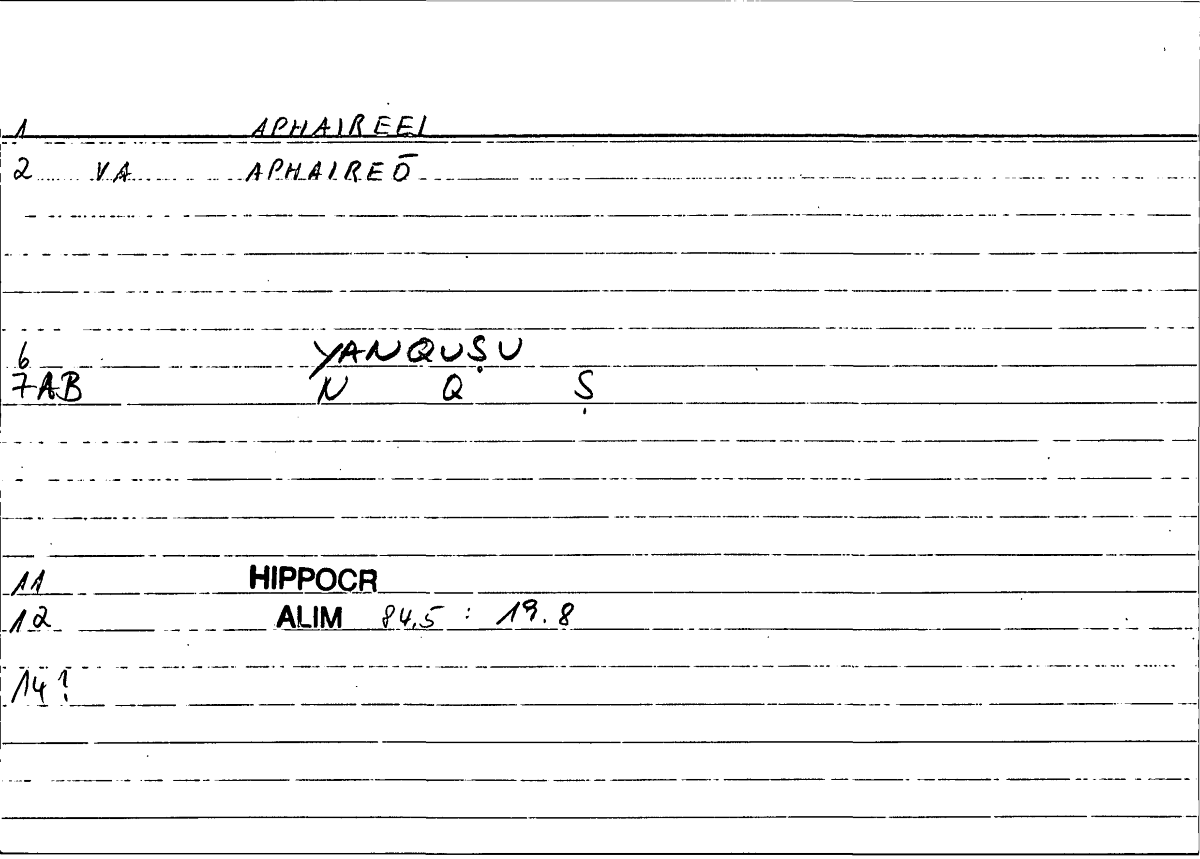 1 APHAIREEI
2 VA APHAIREŌ
6 YANQUṢU
7AB N Q Ṣ
11 HIPPOCR
12 ALIM 84,5 : 19.8
14?